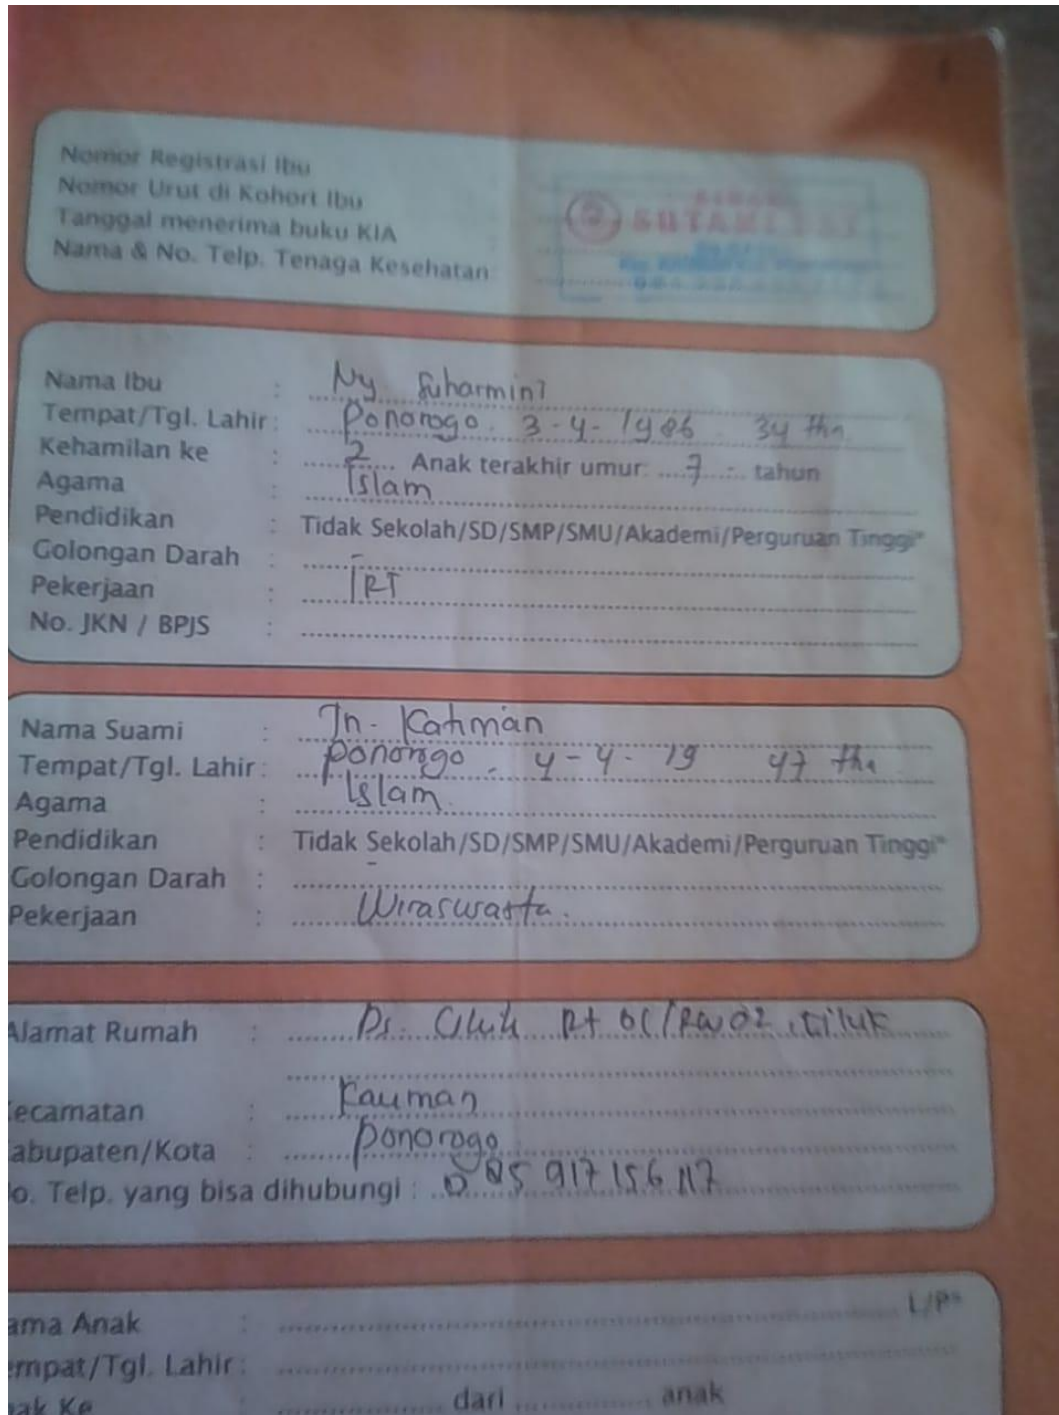 Nomor Registrasi Ibu
Nomor Urut di Kohort Ibu
Tanggal menerima buku KIA
Nama & No. Telp. Tenaga Kesehatan
Nama Ibu : Ny Suharmini
Tempat/Tgl. Lahir : Ponorogo. 3-4-1986. 34 thn
Kehamilan ke : 2 Anak terakhir umur: 7 tahun
Agama : Islam
Pendidikan : Tidak Sekolah/SD/SMP/SMU/Akademi/Perguruan Tinggi*
Golongan Darah : -
Pekerjaan : IRT
No. JKN / BPJS :
Nama Suami : Tn. Katiman
Tempat/Tgl. Lahir : Ponorogo. 4-4-19 47 thn
Agama : Islam.
Pendidikan : Tidak Sekolah/SD/SMP/SMU/Akademi/Perguruan Tinggi*
Golongan Darah : -
Pekerjaan : Wiraswasta.
Alamat Rumah : Ds. Ciluk Rt /Rw 02, Ciluk
ecamatan : Kauman
abupaten/Kota : Ponorogo
o. Telp. yang bisa dihubungi : 085 917 156 117
ama Anak : L/P*
empat/Tgl. Lahir :
ak Ke : dari anak